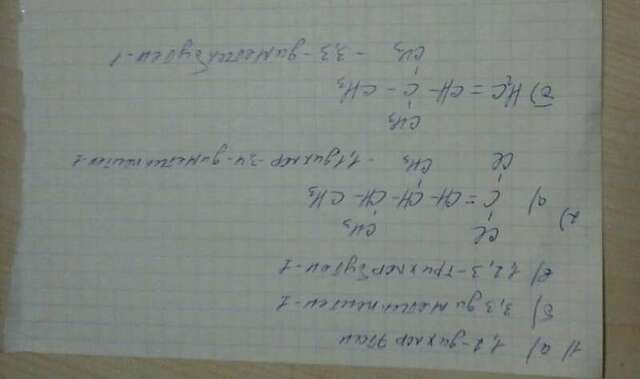 1) а) 1,2-дихлор этан
б) 3,3 диметилпентен-1
в) 1,2,3-трихлорбутен-1
2)
Cl CH₃
а) C = CH - CH - CH - CH₃
Cl CH₃ - 1,1 дихлор-3,4-диметилпентен-1
CH₃
б) H₂C = CH - C - CH₃
CH₃ - 3,3-диметилбутен-1